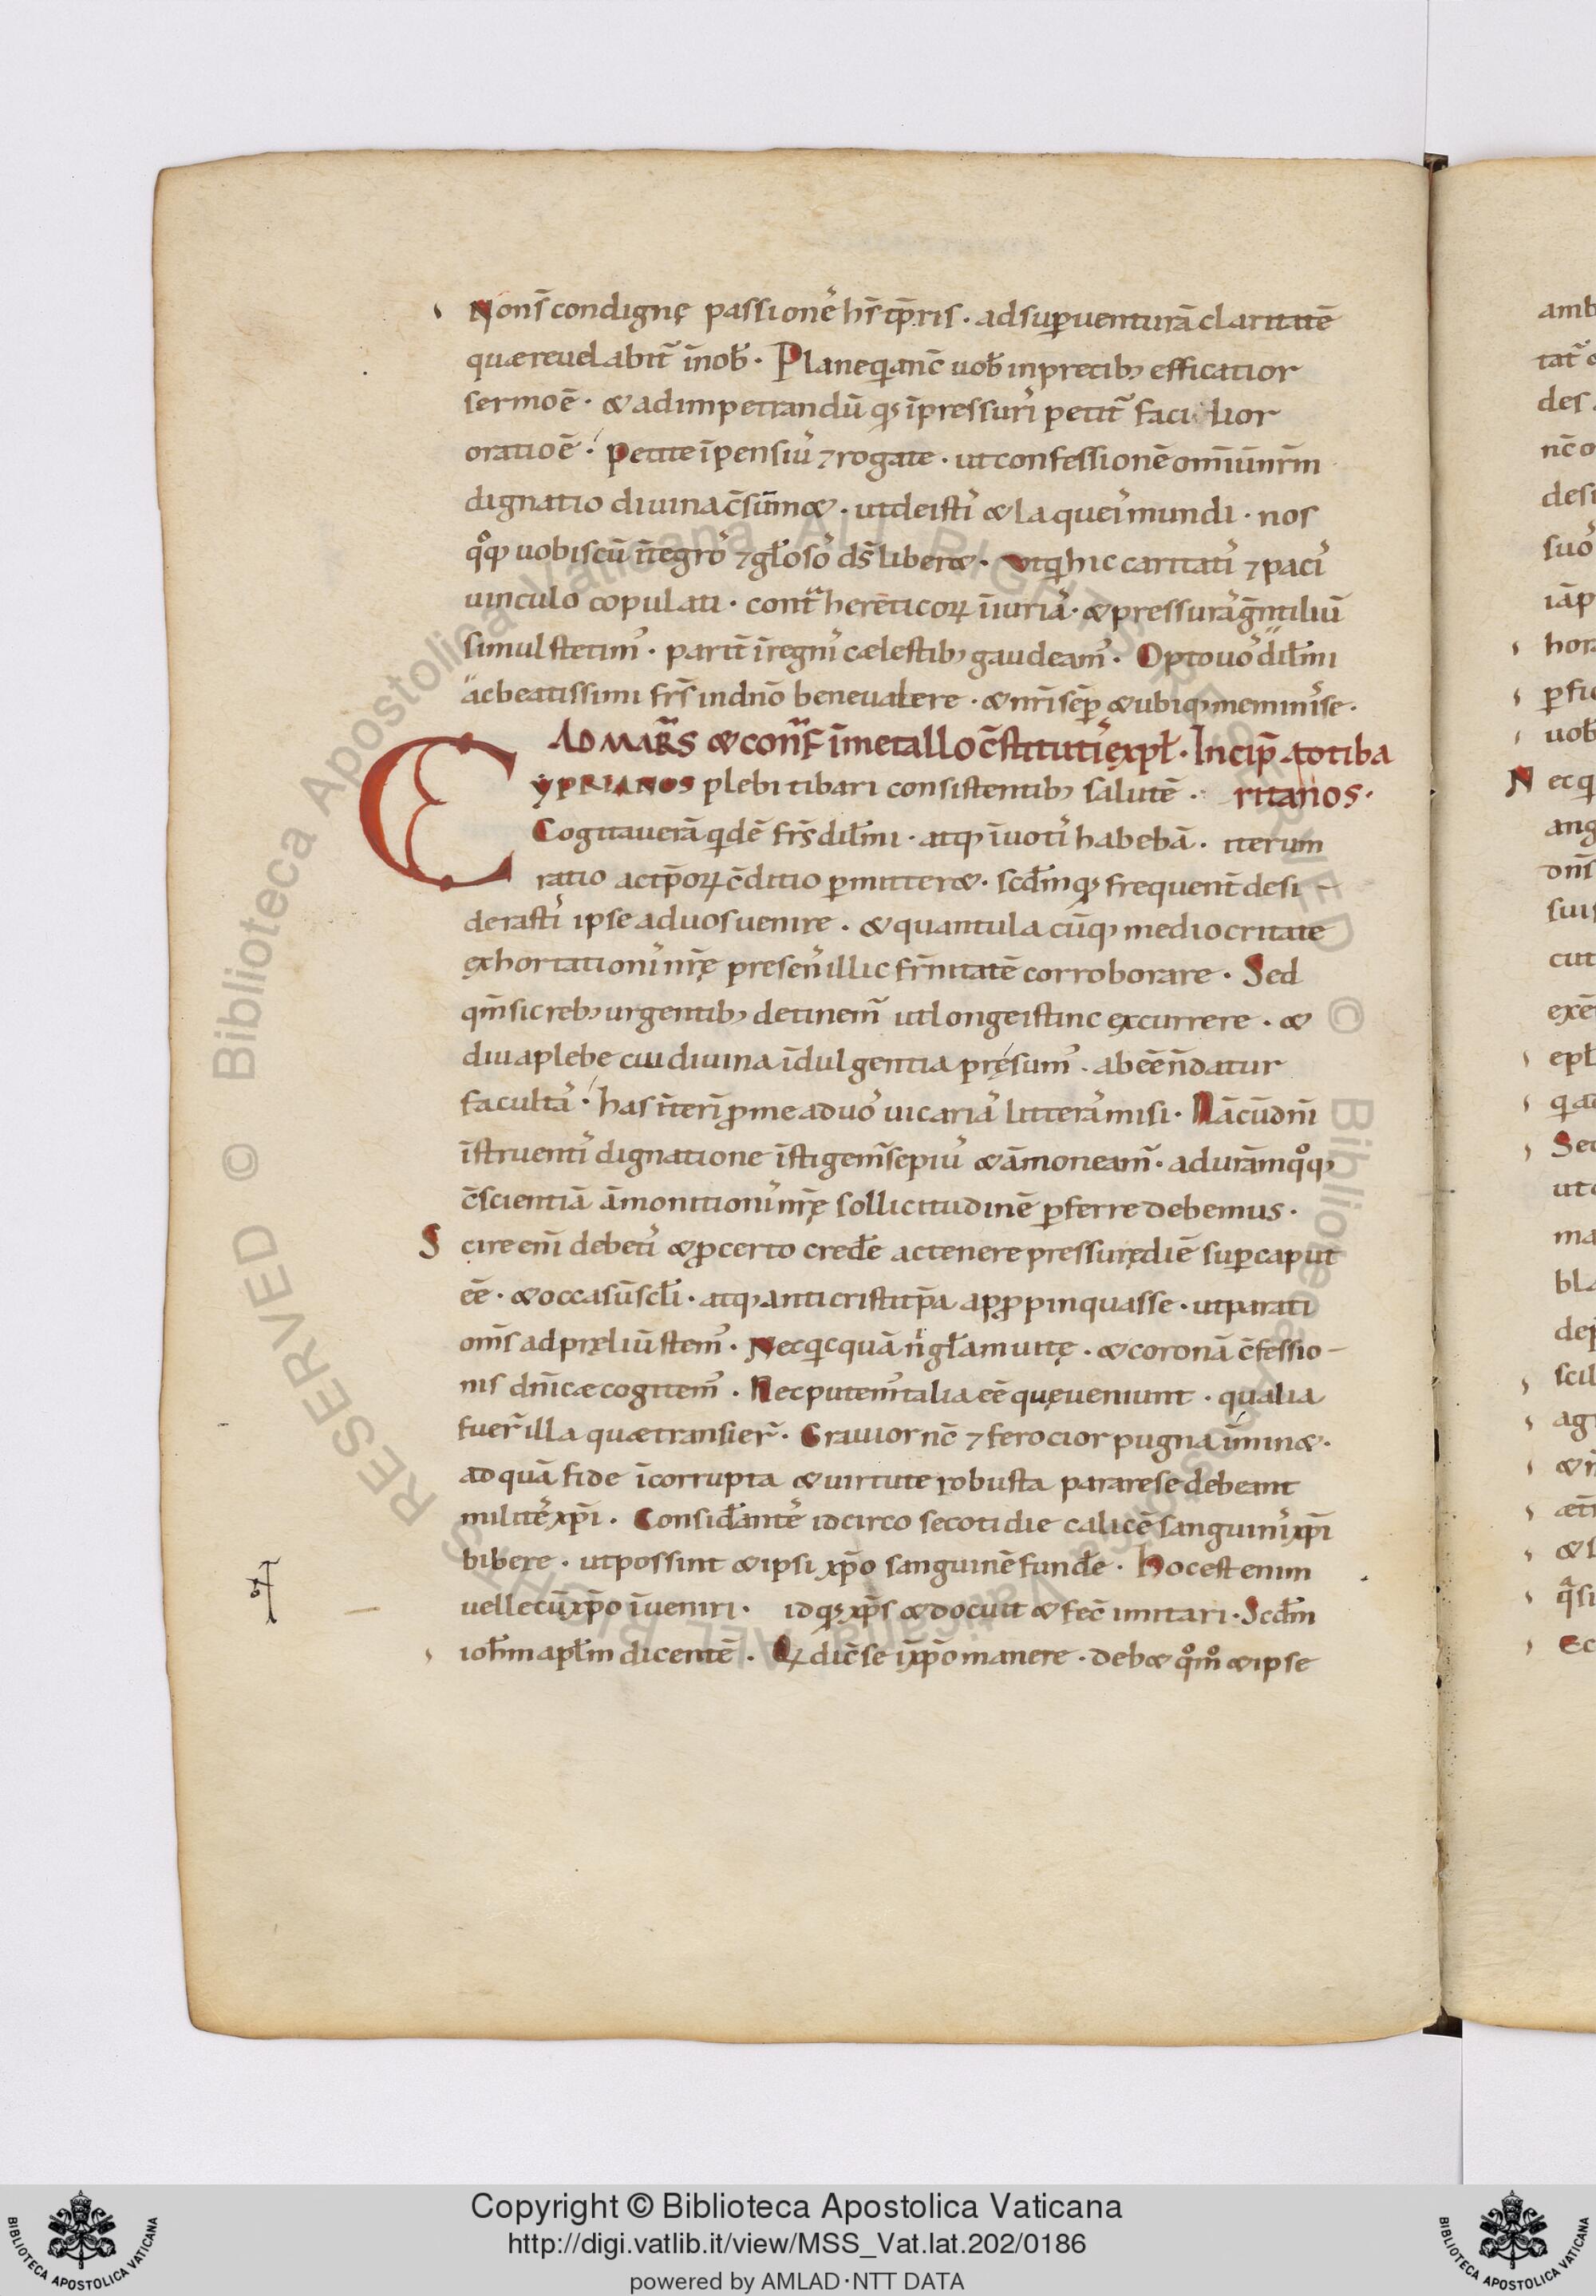 Nons̄ condignę passionē hs̄ tp̄ris · ad suꝑventurā claritatē
quæ reuelabit᷑ īnob̄ · Plane qꝛ anc̄ uob̄ in precib; efficatior
sermo ē · & ad impetrandū qđ īpressuri᷒ petit᷑ facilior
oratio ē · Petite īpensiu᷒ ⁊ rogate · ut confessionē om̄iū nr̄m
dignatio diuina c̄sūm& · ut de isti᷒ & laquei᷒ mundi · nos
qͦq; uobiscū ītegro᷒ ⁊ gl̄oso᷒ ds̄ liber& · ut qui hic caritati᷒ ⁊ paci᷒
uinculo copulati · contͣ hereticoꝝ īiuria᷒ · & pressura᷒ gn̄tiliū
simul stetim᷒ · parit̄ īregni᷒ cælestib; gaudeam᷒ · Opto uo᷒ dil̄mi
ac beatissimi frs̄ in dn̄o bene ualere · & nr̄i sēꝑ & ubiq; meminisse ·
AD MARS̄ & CONF̄ īmetallo c̄stituti᷒ expl̄ · Incip̄ a totiba
CYPRIANOS plebi tibari consistentib; salutē · ritanos ·
Cogitauerā qꝺē frs̄ dil̄mi · atq; īuoti᷒ habebā · iterum
ratio ac tp̄oꝝ c̄ditio ꝑmitter& · scđm qđ frequent̄ desi-
derasti᷒ ipse ad uos uenire · & quantulacūq; mediocritate
exhortationi᷒ nr̄ę presen᷒ illic fr̄nitatē corroborare · Sed
qm̄ sic reb; urgentib; detinem̄ ut longe istinc excurrere · &
diu a plebe cui diuina īdulgentia pręsum᷒ · abēē n̄ datur
faculta᷒ · has īteri꞊ ꝓ me ad uo᷒ uicaria᷒ littera᷒ misi · Nā cū dn̄i
īstruenti᷒ dignatione īstigem̄ sepiu᷒ & āmoneam̄ · ad ur̄am qͦq;
c̄scientiā āmonitioni᷒ nr̄ę sollicitudinē ꝑferre debemus ·
Scire eni꞊ debeti᷒ & ꝓ certo credr̄e ac tenere pressurę diē suꝑ caput
eē · & occasū scl̄i · atq; anticristi tp̄a apꝓpinquasse · ut parati
om̄s ad pręliū stem᷒ · Nec qicquā nͥ gl̄am uitę · & coronā c̄fessio-
nis dn̄icæ cogitem᷒ · Nec putem᷒ talia eē quę ueniunt · qualia
fuer̄ illa quæ transier̄ · Grauior nc̄ ⁊ ferocior pugna īmin& ·
ad quā fide īcorrupta & uirtute robusta parare se debeant
milite᷒ xp̄i · Considerante᷒ idcirco se cotidie calicē sanguini᷒ xp̄i
bibere · ut possint & ipsi xp̄o sanguinē fundr̄e · Hoc est enim
uelle cū xp̄o īueniri · id qđ xp̄s & docuit & fec̄ imitari · Scđm
ioh̄m apl̄m dicentē · Qꝛ dic̄ se īxp̄o manere · deb& qͦmͦ & ipse
amb
tat᷑
des
nc̄ o
desi
suo᷒
iā p
hora
ꝑfic
uob̄
Nec q
ang
om̄s
suis
cut
exē
epl̄
q̄ a
Sed
ut
ma
bla
dep
scil
ag
& n̄
æt
& s
qͣsi
Ec
Biblioteca Apostolica Vaticana ALL RIGHTS RESERVED © Biblioteca Apostolica Vaticana ALL RIGHTS RESERVED ©
Copyright © Biblioteca Apostolica Vaticana
http://digi.vatlib.it/view/MSS_Vat.lat.202/0186
powered by AMLAD·NTT DATA
BIBLIOTECA APOSTOLICA VATICANA
BIBLIOTECA APOSTOLICA VATICANA